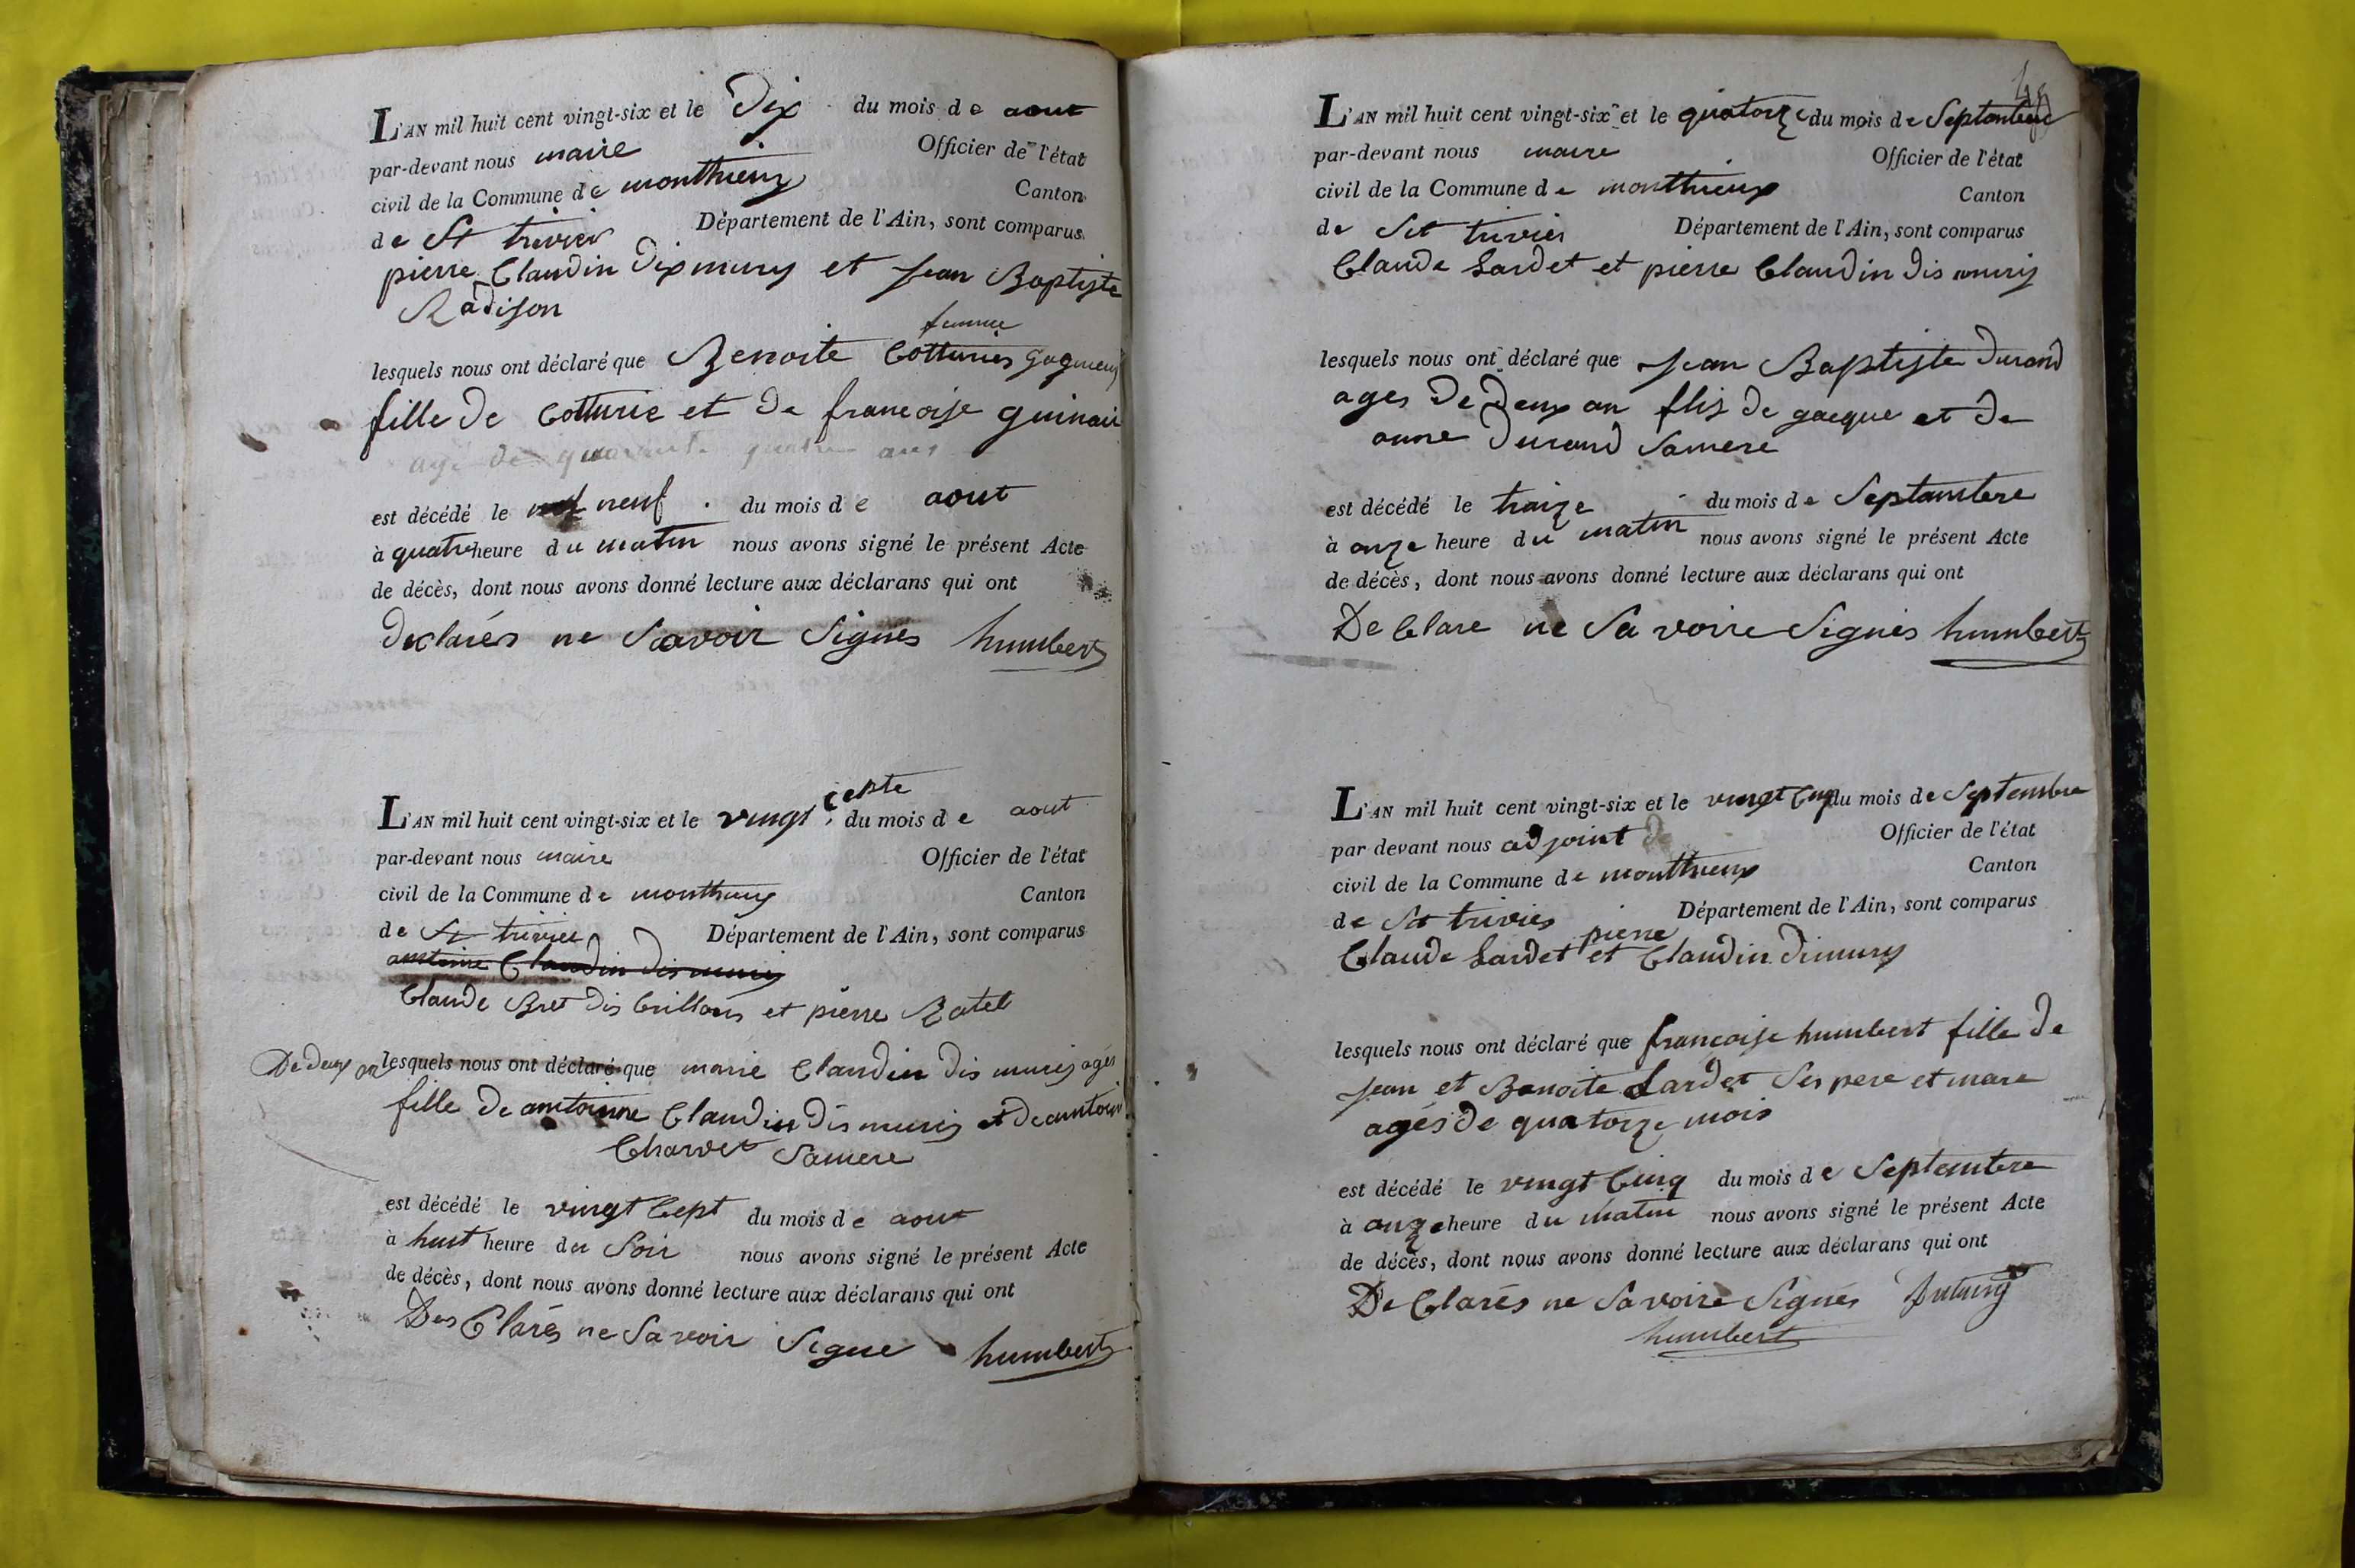 L'AN mil huit cent vingt-six et le Dix du mois de aout
par-devant nous maire Officier de l'état
civil de la Commune de monthieux Canton
de St trivier Département de l'Ain, sont comparus
pierre Claudin Dixmurys et Jean Baptiste
Radison
femme
lesquels nous ont déclaré que Benoite Cotturies
fille de Cotturie et De francoise
agé de quarante quatre ans
est décédé le neuf du mois de aout
à quatre heure du matin nous avons signé le présent Acte
de décès, dont nous avons donné lecture aux déclarans qui ont
declarés ne Savoir Signés humbert
L'AN mil huit cent vingt-six et le vingt cepte du mois de aout
par-devant nous maire Officier de l'état
civil de la Commune de monthieux Canton
de St trivier Département de l'Ain, sont comparus
antoine Claudin dis muris
Claude Bret dis Crillons et pierre Ratel
De deux an lesquels nous ont déclaré que marie Claudin Dis muris agés
fille de antoinne Claudin dis muris et de antoin
Charvet Samere
est décédé le vingt Cept du mois de aout
à huit heure du Soir nous avons signé le présent Acte
de décès, dont nous avons donné lecture aux déclarans qui ont
Des Clarés ne Savoir Signe humbert
L'AN mil huit cent vingt-six et le quatorze du mois de Septembre
par-devant nous maire Officier de l'état
civil de la Commune de monthieux Canton
de St trivier Département de l'Ain, sont comparus
Claude Lardet et pierre Claudin dis muris
lesquels nous ont déclaré que Jean Baptiste Durand
ages De Deux an flis de gacque et de
anne Durand Samere
est décédé le traize du mois de Septambere
à onze heure du matin nous avons signé le présent Acte
de décès, dont nous avons donné lecture aux déclarans qui ont
De Clare ne Sa voire Signés humbert
L'AN mil huit cent vingt-six et le vingt Cinq du mois de Septembre
par devant nous adjoint de Officier de l'état
civil de la Commune de monthieux Canton
de St trivier Département de l'Ain, sont comparus
pierre
Claude Lardet et Claudin dimurys
lesquels nous ont déclaré que françoise humbert fille de
Jean et Benoite Lardet Ses pere et mare
agés de quatorze mois
est décédé le vingt Cinq du mois de Septembere
à onze heure du matin nous avons signé le présent Acte
de décès, dont nous avons donné lecture aux déclarans qui ont
De Clarés ne Savoire Signés
humbert